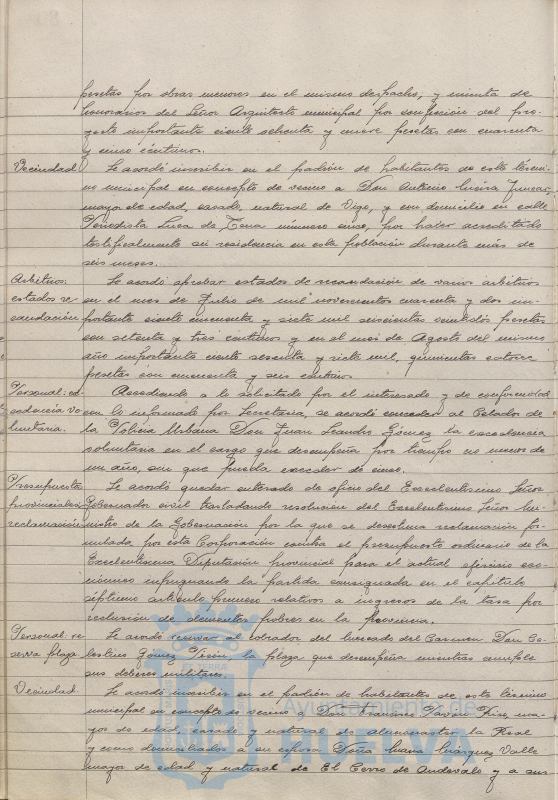 pesetas por obras menores en el mismo despacho, y minuta de
honorarios del Señor Arquitecto municipal por confección del pro-
yecto importante ciento ochenta y nueve pesetas con cuarenta
y cinco céntimos.
Vecindad. Se acordó inscribir en el padrón de habitantes de este térmi-
no municipal en concepto de vecino a Don Antonio
mayor de edad, casado, natural de Vigo, y con domicilio en calle
Periodista Luca de Tena número once, por haber acreditado
testificalmente su residencia en esta población durante más de
seis meses.
Arbitrios: Se acordó aprobar estados de recaudación de varios arbitrios
estados re en el mes de Julio de mil novecientos cuarenta y dos im-
caudación portante ciento cincuenta y siete mil seiscientas veintidós pesetas
con setenta y tres céntimos y en el mes de Agosto del mismo
año importante ciento sesenta y siete mil, quinientas catorce
pesetas con cincuenta y seis céntimos
Personal: ex Accediendo a lo solicitado por el interesado y de conformidad
cedencia vo con lo informado por Secretaría, se acordó conceder al Celador de
luntaria. la Policía Urbana Don Juan Leandro Gómez la excedencia
voluntaria en el cargo que desempeña por tiempo no menos de
un año, sin que pueda exceder de cinco.
Presupuesto Se acordó quedar enterado de oficio del Excelentísimo Señor
provinciales Gobernador civil trasladando resolución del Excelentísimo Señor Mi-
reclamación nistro de la Gobernación por la que se desestima reclamación for-
mulada por esta Corporación contra el presupuesto ordinario de la
Excelentísima Diputación provincial para el actual ejercicio eco-
nómico impugnando la partida consignada en el capítulo
séptimo artículo primero relativos a ingresos de la tasa por
reclusión de dementes pobres en la provincia.
Personal: re Se acordó reservar al cobrador del Mercado del Carmen Don Ce-
serva plaza lestino Gómez la plaza que desempeña mientras cumple
sus deberes militares.
Vecindad. Se acordó inscribir en el padrón de habitantes de este término
municipal en concepto de vecino a Don Francisco Pavón ma-
yor de edad, casado y natural de Almonaster la Real
y como domiciliados a su esposa Doña María Márquez Valle
mayor de edad y natural de El Cerro de Andévalo y a sus
EL TERRÆ
Ayuntamiento de
HUELVA